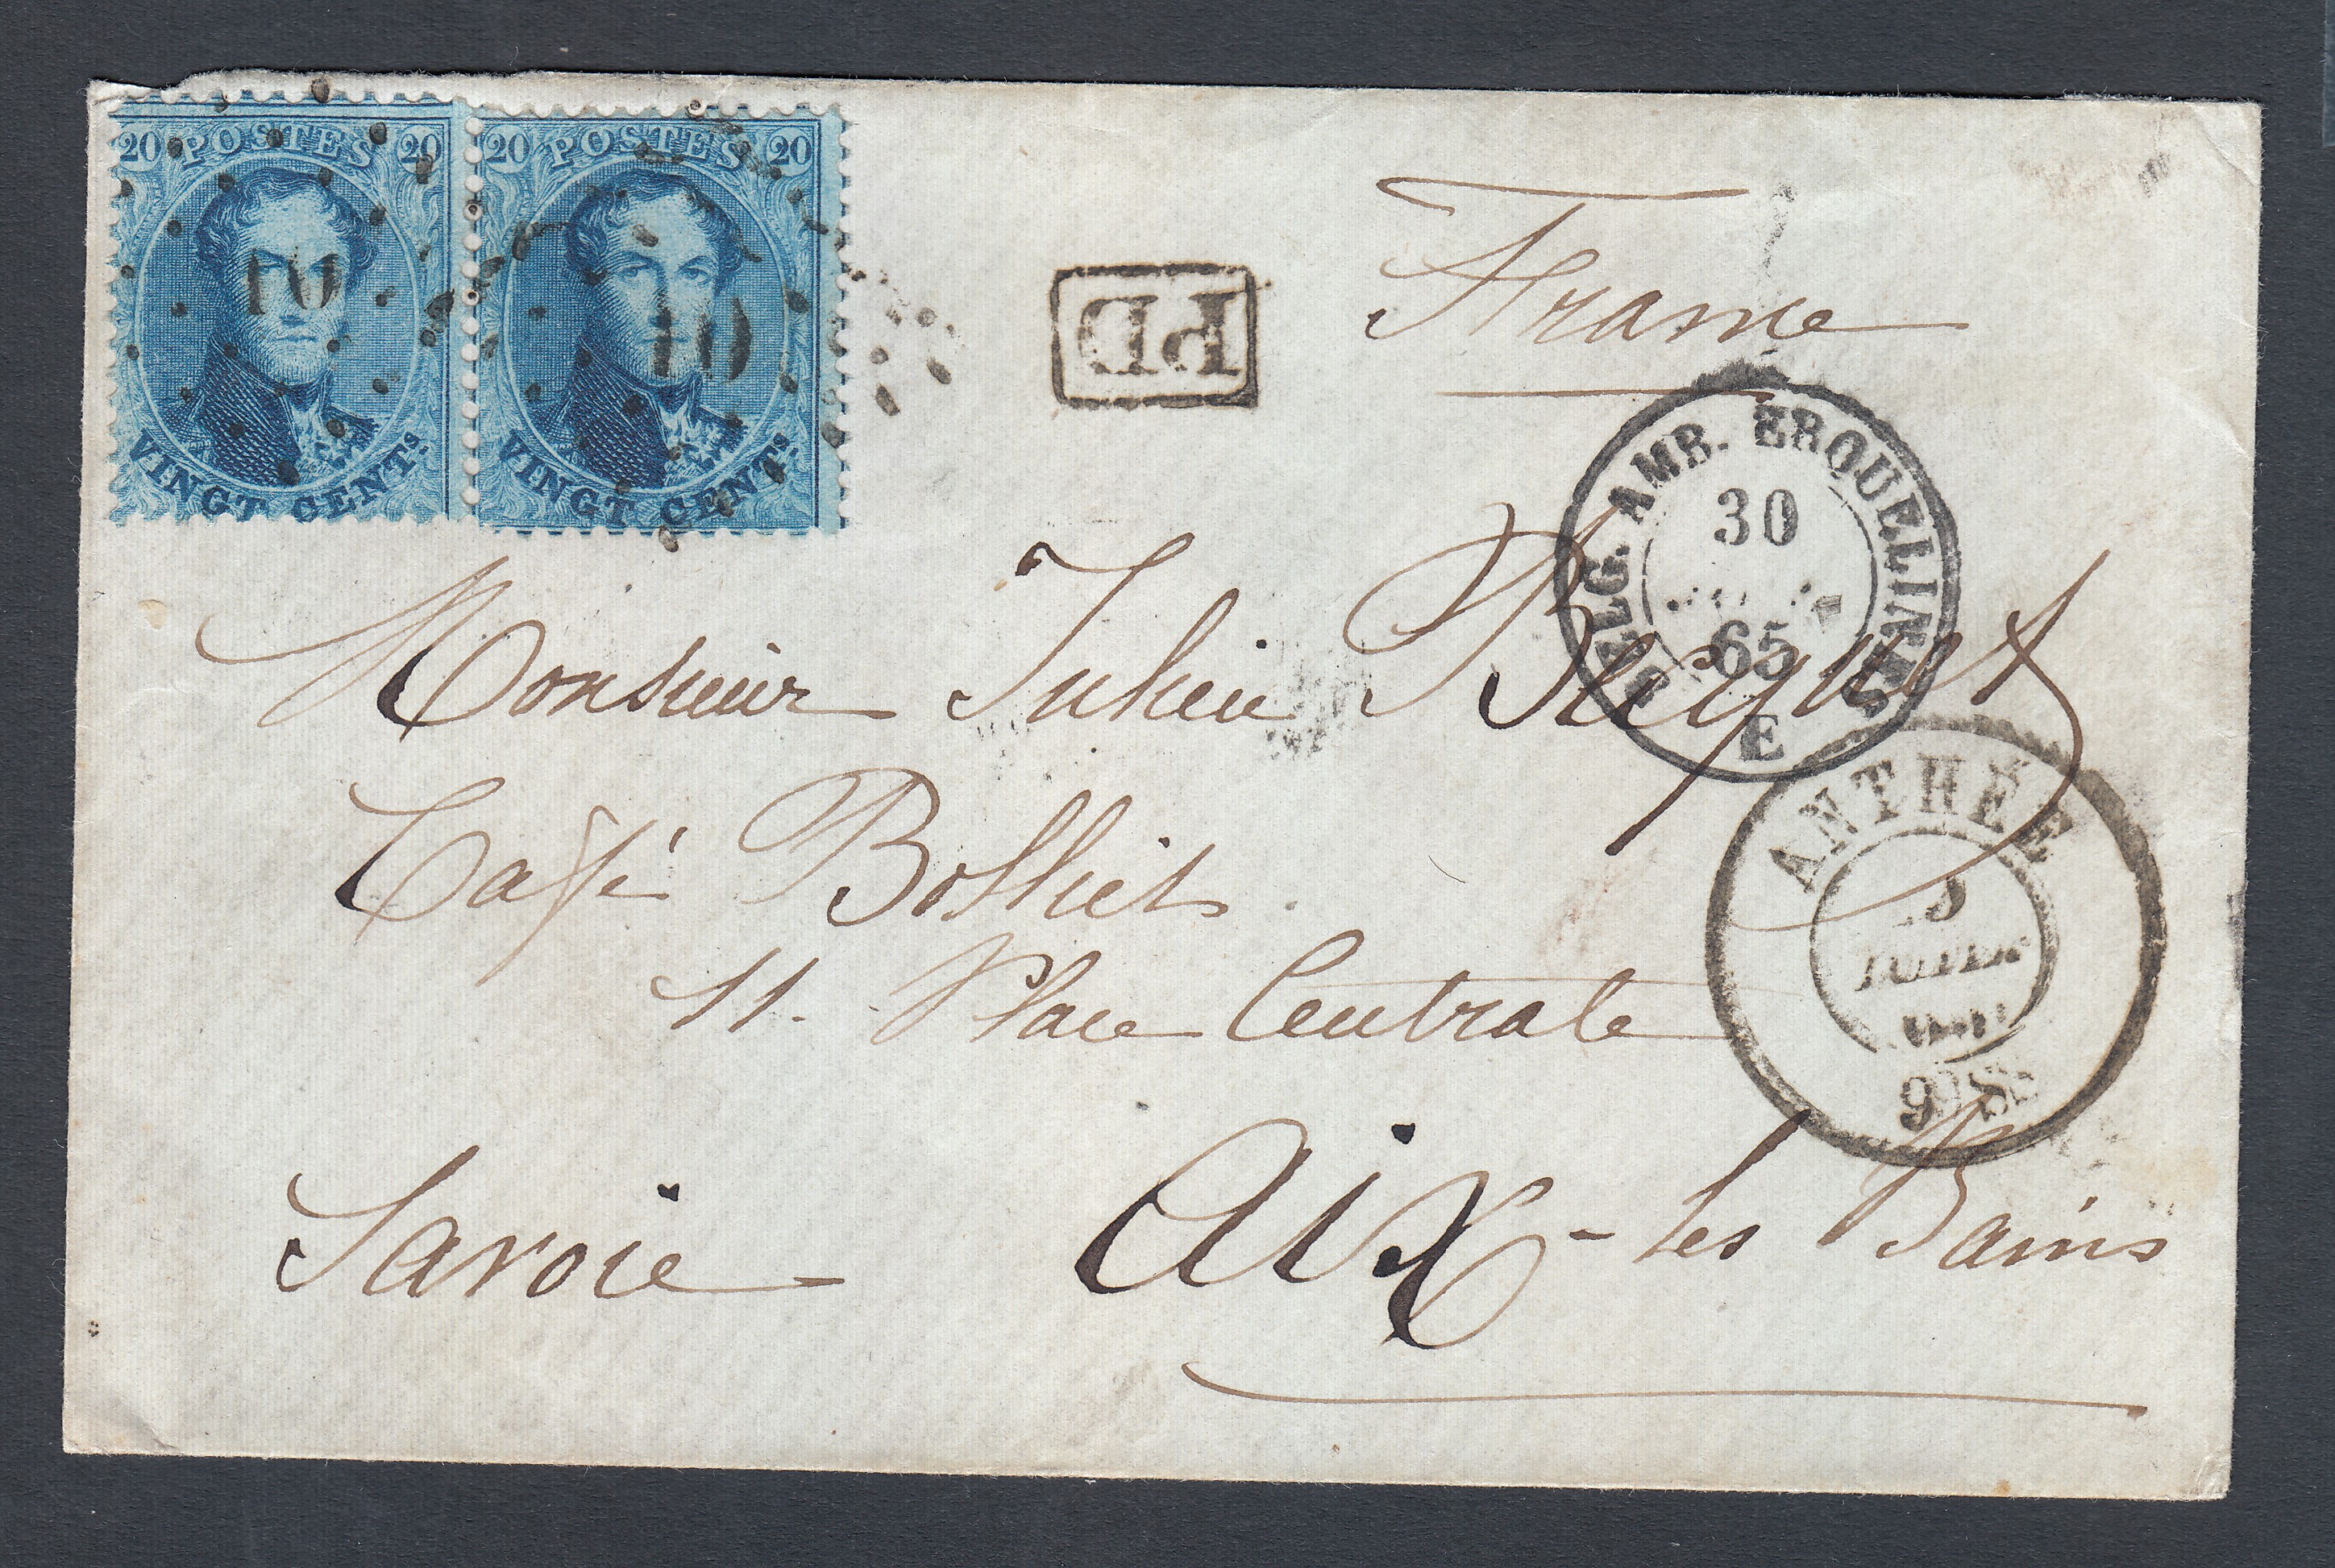 20 POSTES 20
VINGT CENTS
10
20 POSTES 20
VINGT CENTS
10
PD
France
BELG. AMB. ERQUELINNES
30
65
E
Monsieur Julien
Café Bolliet
11. Place Centrale
ANTHÉE
9
Savoie
Aix-les Bains